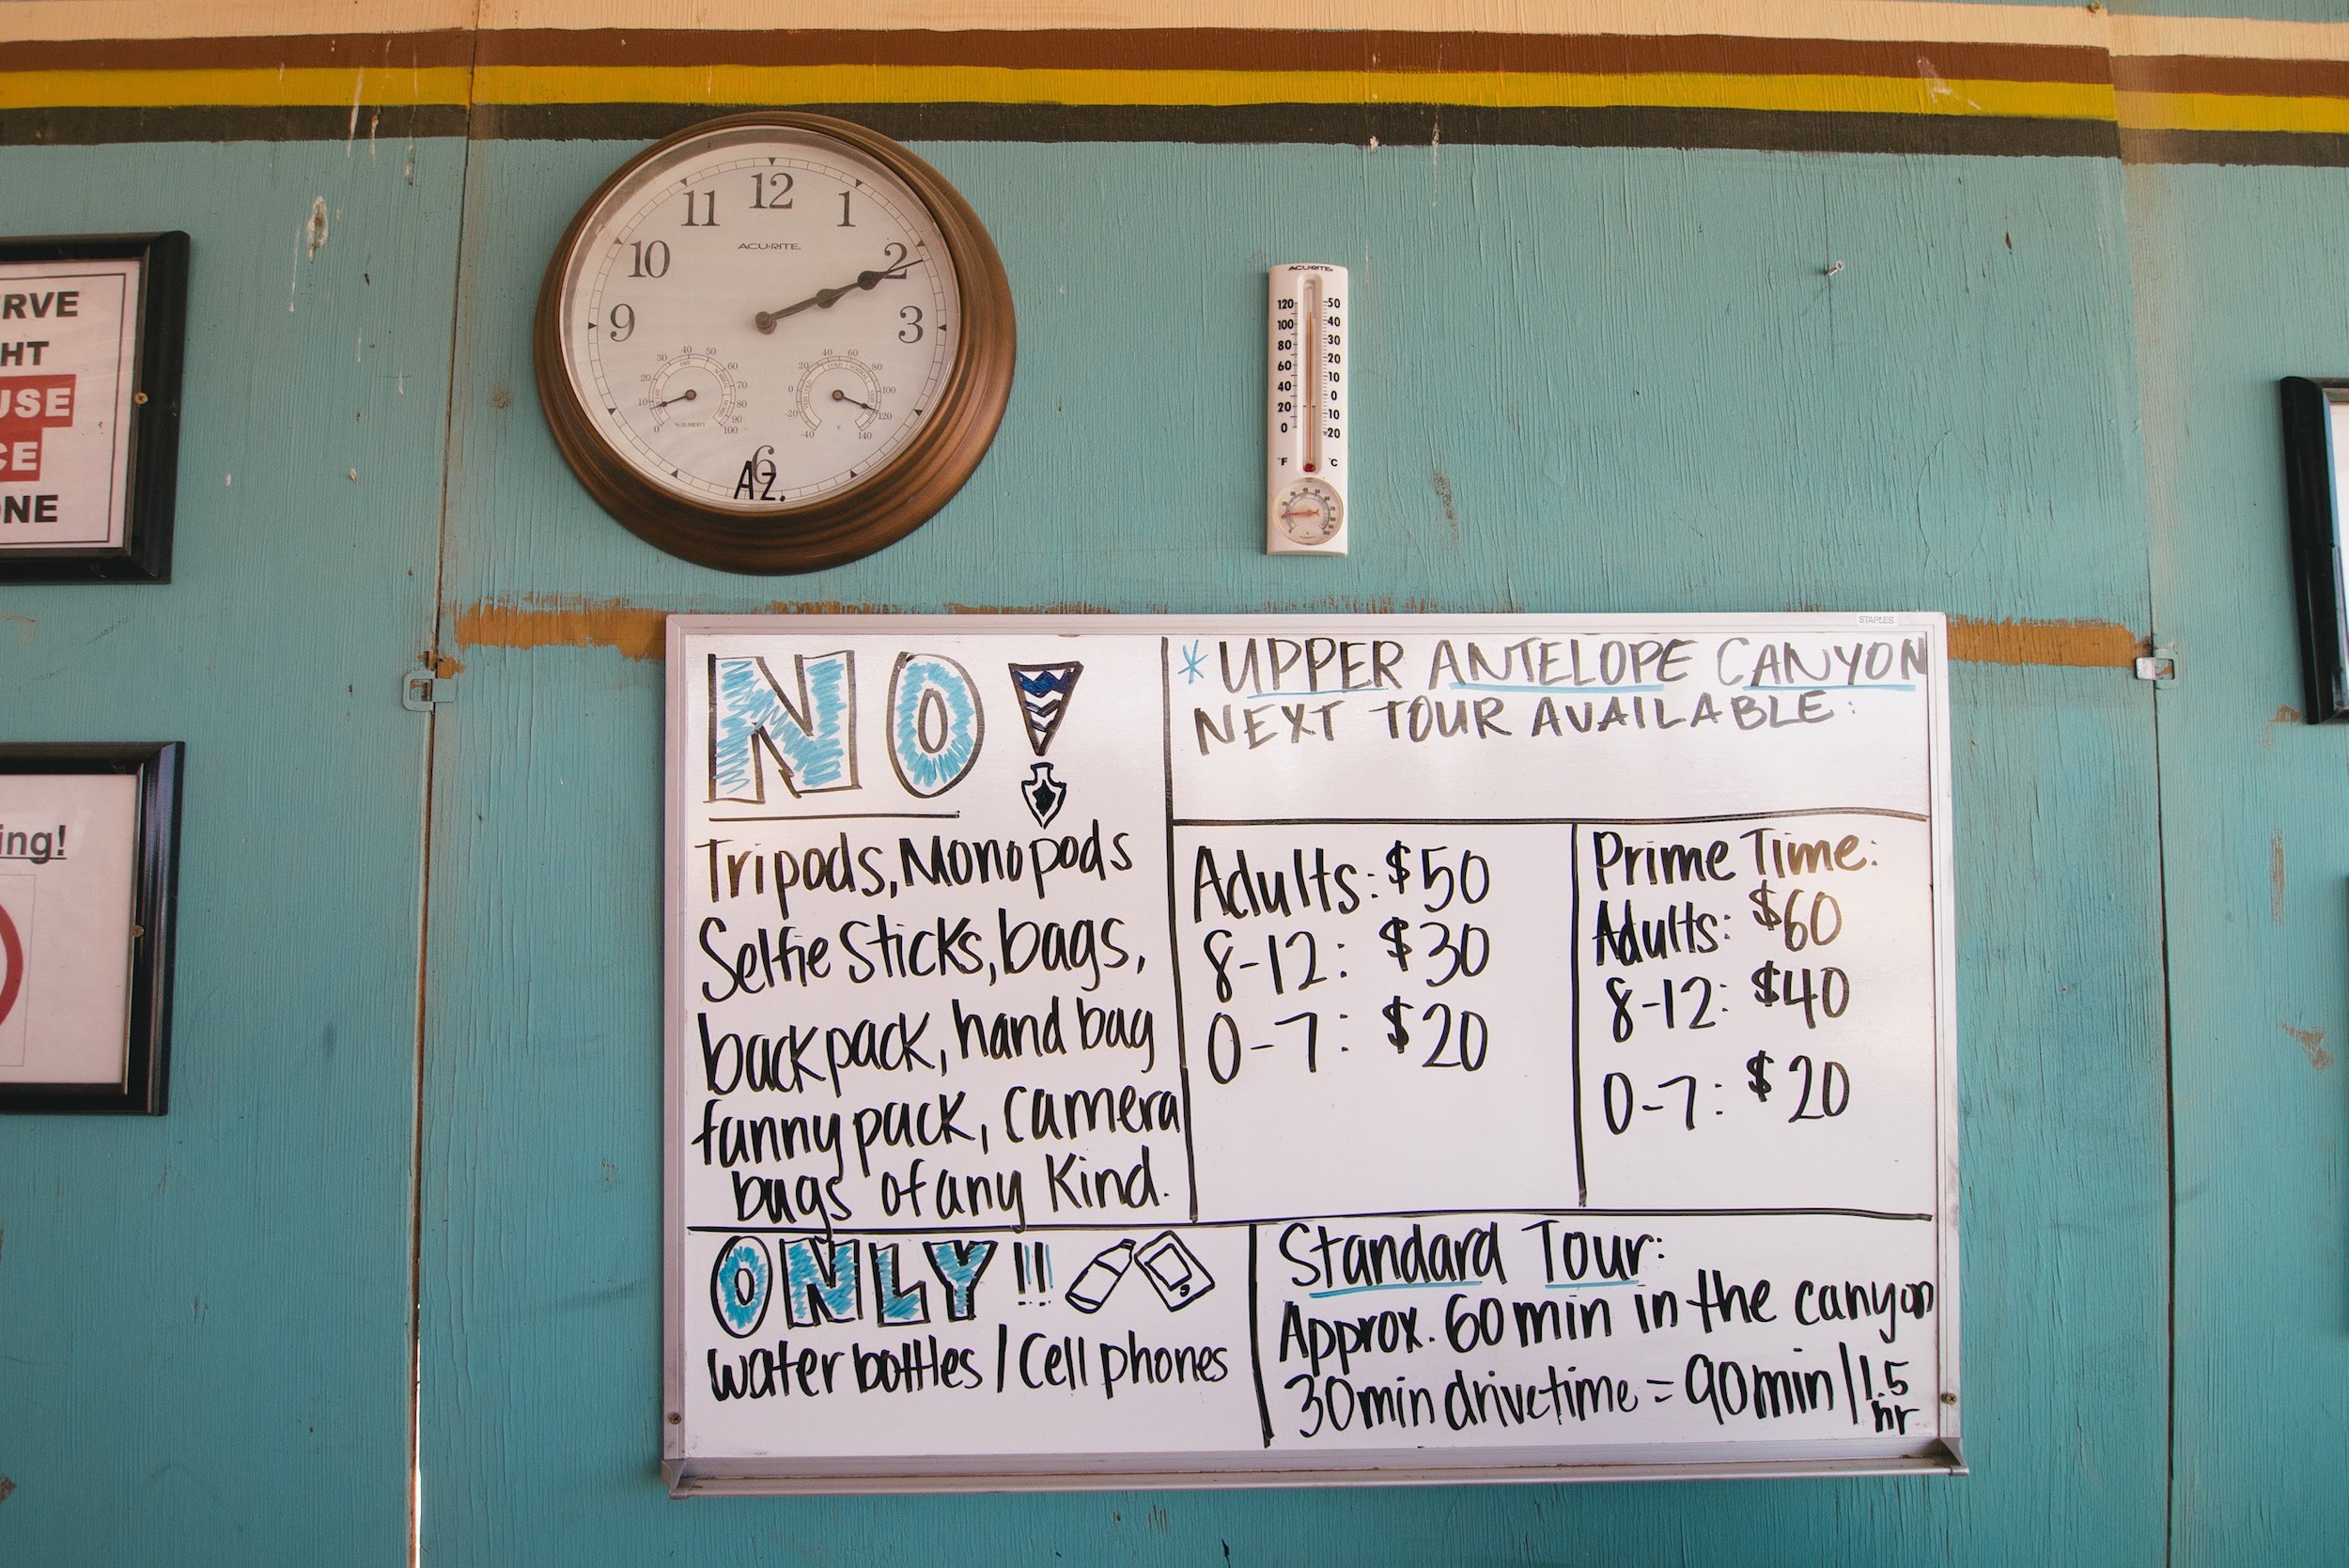 RVE
HT
USE
CE
ONE
ing!
12
11
1
ACU·RITE.
10
2
9
3
6
AZ.
40 50
30 60
20 70
10 80
90
0 100
% HUMIDITY
40 60
20 80
0 100
-20 120
-40 140
°F
ACU·RITE.
120 50
100 40
80 30
60 20
40 10
20 0
0 10
20
°F °C
STAPLES
NO
Tripods, Monopods
Selfie Sticks, bags,
backpack, hand bag
fanny pack, camera
bags of any Kind.
* UPPER ANTELOPE CANYON
NEXT TOUR AVAILABLE:
Adults: $50
8-12: $30
0-7: $20
Prime Time:
Adults: $60
8-12: $40
0-7: $20
ONLY!!
water bottles / Cell phones
Standard Tour:
Approx. 60 min in the canyon
30 min drivetime = 90 min | 1.5
hr